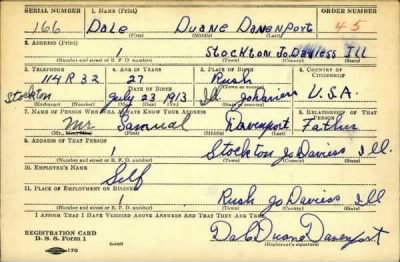 SERIAL NUMBER 1. NAME (Print) ORDER NUMBER
166 Dale Duane Davenport 45
(First) (Middle) (Last)
2. ADDRESS (Print)
1 Stockton Jo Daviess Ill
(Number and street or R. F. D. number) (Town) (County) (State)
3. TELEPHONE 4. AGE IN YEARS 5. PLACE OF BIRTH 6. COUNTRY OF CITIZENSHIP
114 R 32 27 Rush
Stockton DATE OF BIRTH
July 23 1913 Ill Jo Daviess U.S.A.
(Exchange) (Number) (Mo.) (Day) (Yr.) (State or country)
7. NAME OF PERSON WHO WILL ALWAYS KNOW YOUR ADDRESS 8. RELATIONSHIP OF THAT PERSON
Mr Samual Davenport Father
(Mr., Mrs., Miss) (First) (Middle) (Last)
9. ADDRESS OF THAT PERSON
1 Stockton Jo Daviess Ill.
(Number and street or R. F. D. number) (Town) (County) (State)
10. EMPLOYER'S NAME
Self
11. PLACE OF EMPLOYMENT OR BUSINESS
1 Rush Jo Daviess Ill
(Number and street or R. F. D. number) (Town) (County) (State)
I AFFIRM THAT I HAVE VERIFIED ABOVE ANSWERS AND THAT THEY ARE TRUE.
REGISTRATION CARD
D. S. S. Form 1
Dale Duane Davenport
(Registrant's signature)